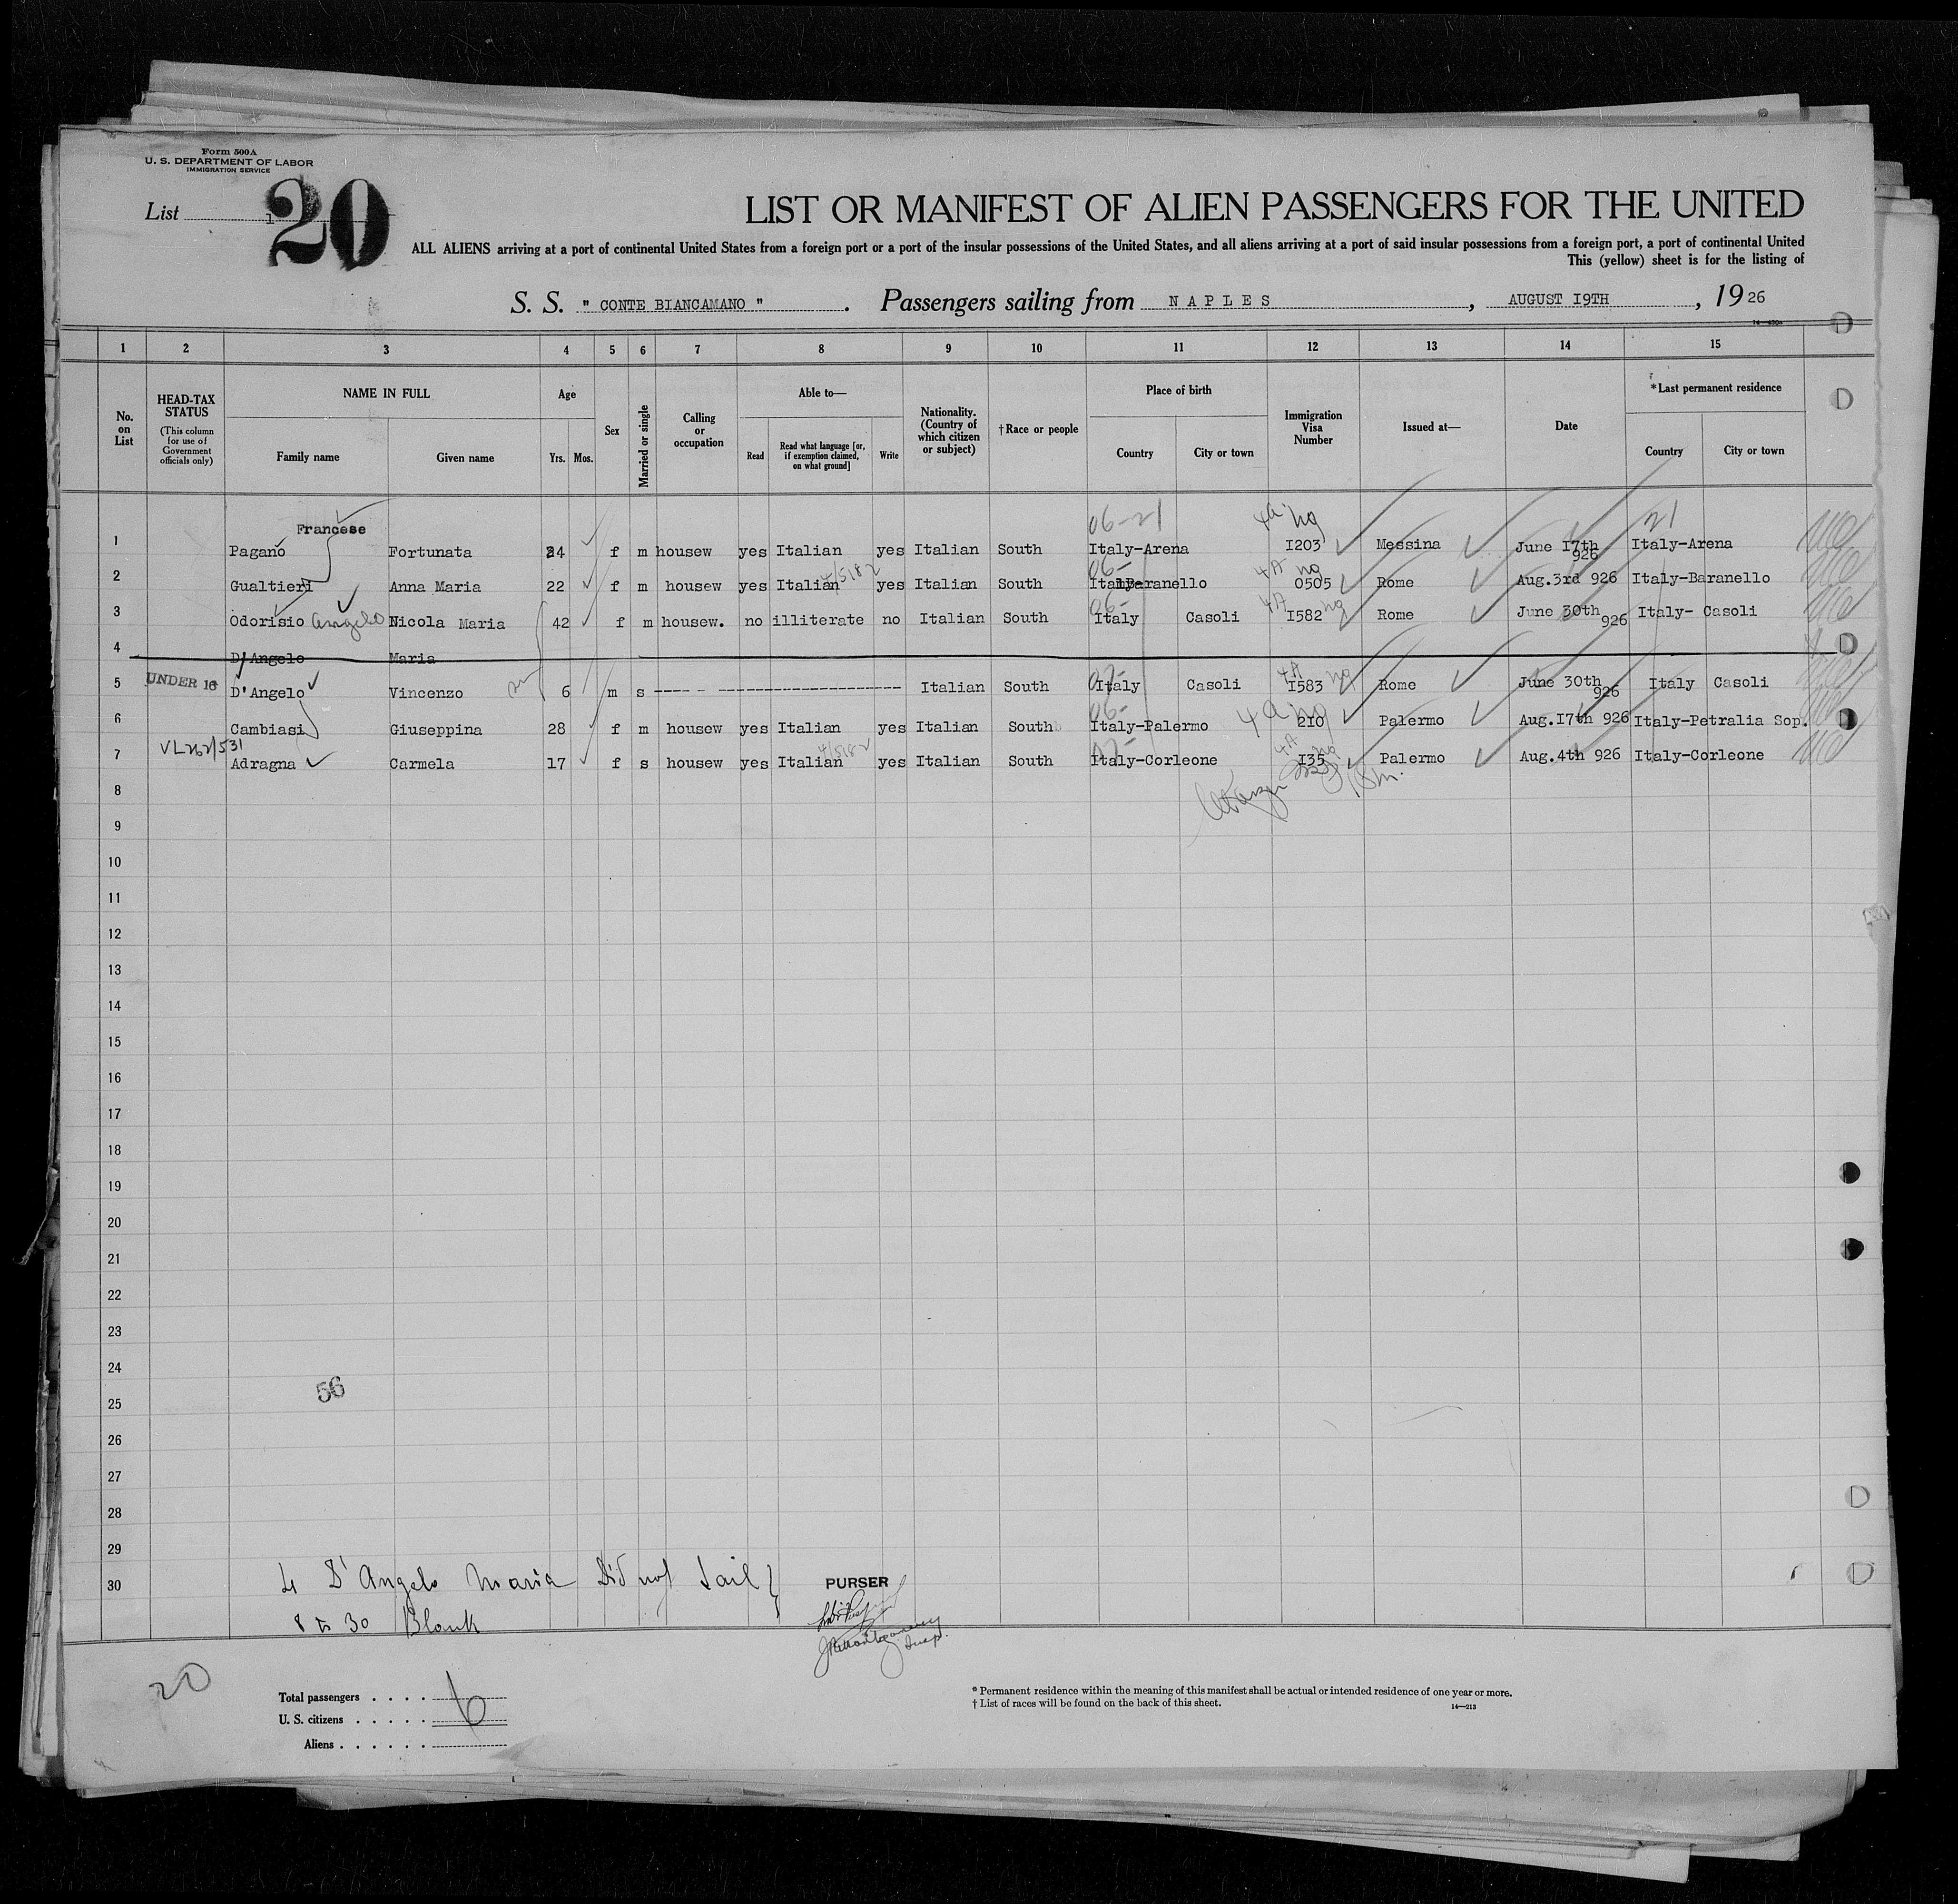 Form 500A
U. S. DEPARTMENT OF LABOR
IMMIGRATION SERVICE
List 20
LIST OR MANIFEST OF ALIEN PASSENGERS FOR THE UNITED
ALL ALIENS arriving at a port of continental United States from a foreign port or a port of the insular possessions of the United States, and all aliens arriving at a port of said insular possessions from a foreign port, a port of continental United
This (yellow) sheet is for the listing of
S. S. " CONTE BIANCAMANO ". Passengers sailing from NAPLES, AUGUST I9TH, 1926
1 2 3 4 5 6 7 8 9 10 11 12 13 14 15
No. on List
HEAD-TAX STATUS
(This column for use of Government officials only)
NAME IN FULL
Family name
Given name
Age
Yrs. Mos.
Sex
Married or single
Calling or occupation
Able to—
Read
Read what language [or, if exemption claimed, on what ground]
Write
Nationality. (Country of which citizen or subject)
†Race or people
Place of birth
Country
City or town
Immigration Visa Number
Issued at—
Date
*Last permanent residence
Country
City or town
Francese 06-21 4A ng 21
1 Pagano Fortunata 24 f m housew yes Italian yes Italian South Italy-Arena I203 Messina June I7th 926 Italy-Arena
06- 4A ng
2 Gualtieri Anna Maria 22 f m housew yes Italian yes Italian South Italy-Baranello 0505 Rome Aug.3rd 926 Italy-Baranello
06- 4A ng
3 Odorisio Angelo Nicola Maria 42 f m housew. no illiterate no Italian South Italy Casoli I582 Rome June 30th 926 Italy- Casoli
4 D'Angelo Maria
07- 4A ng
5 UNDER 16 D'Angelo Vincenzo 6 m s Italian South Italy Casoli I583 Rome June 30th 926 Italy Casoli
06- 4A ng
6 Cambiasi Giuseppina 28 f m housew yes Italian yes Italian South Italy-Palermo 210 Palermo Aug.I7th 926 Italy-Petralia Sop.
07- 4A ng
7 Adragna Carmela 17 f s housew yes Italian yes Italian South Italy-Corleone I35 Palermo Aug.4th 926 Italy-Corleone
8
9
10
11
12
13
14
15
16
17
18
19
20
21
22
23
24
56
25
26
27
28
29
30 4 D'Angelo Maria Did not Sail
PURSER
8 to 30 Blank
20
Total passengers . . . . 6
U. S. citizens . . . . .
Aliens . . . . . .
* Permanent residence within the meaning of this manifest shall be actual or intended residence of one year or more.
† List of races will be found on the back of this sheet.
14—213